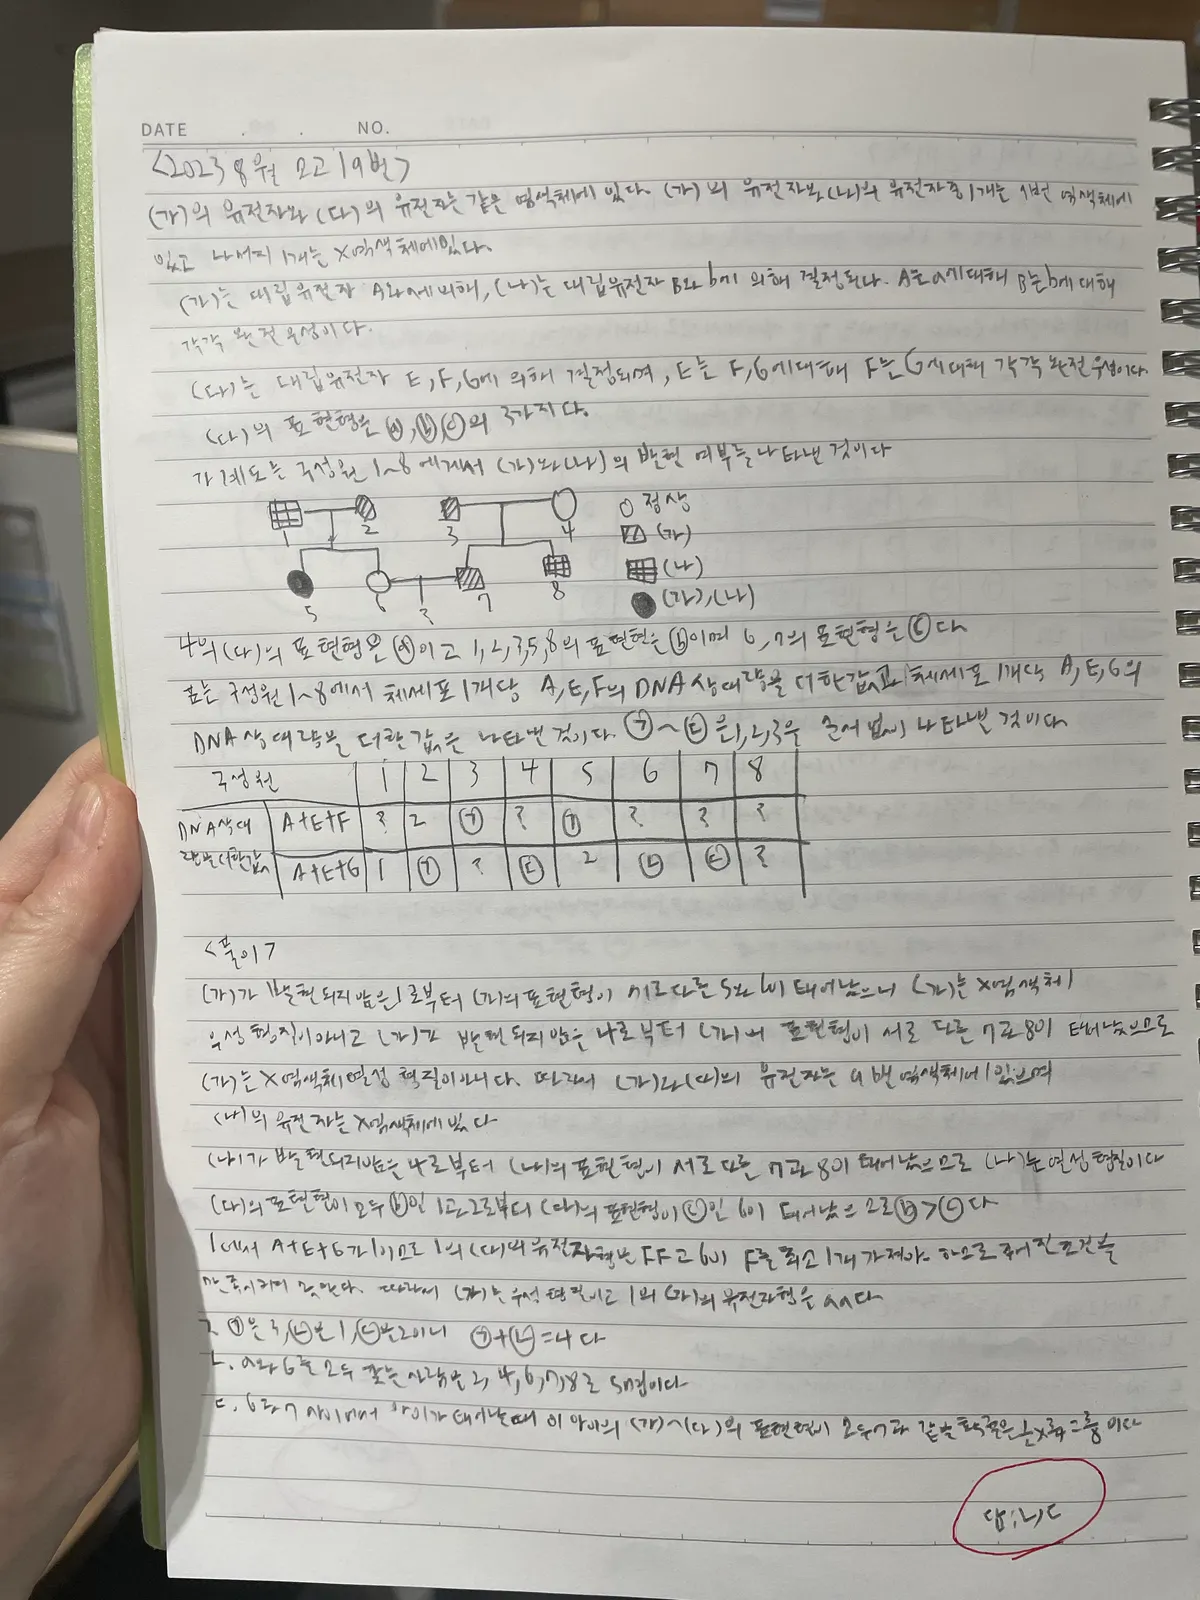 DATE . . NO.
<2023 8월 모고 19번>
(가)의 유전자와 (다)의 유전자는 같은 염색체에 있다. (가)의 유전자와 (나)의 유전자 중 1개는 9번 염색체에
있고 나머지 1개는 X염색체에 있다.
(가)는 대립유전자 A와 a에 의해, (나)는 대립유전자 B와 b에 의해 결정된다. A는 a에 대해 B는 b에 대해
각각 완전 우성이다.
(다)는 대립유전자 E, F, G에 의해 결정되며, E는 F, G에 대해 F는 G에 대해 각각 완전 우성이다.
(다)의 표현형은 ⓐ, ⓑ, ⓒ의 3가지다.
가계도는 구성원 1~8에게서 (가)와 (나)의 발현 여부를 나타낸 것이다
1 2 3 4 ○ 정상
(가)
(나)
5 6 ? 7 8 (가), (나)
4의 (다)의 표현형은 ⓐ이고 1, 2, 3, 5, 8의 표현형은 ⓑ이며 6, 7의 표현형은 ⓒ다
표는 구성원 1~8에서 체세포 1개당 A, E, F의 DNA 상대량을 더한 값과 체세포 1개당 A, E, G의
DNA 상대량을 더한 값을 나타낸 것이다. ㉠~㉢은 1, 2, 3을 순서 없이 나타낸 것이다
구성원 1 2 3 4 5 6 7 8
DNA 상대 A+E+F ? 2 ㉠ ? ㉠ ? ? ?
량을 더한 값 A+E+G 1 ㉠ ? ㉢ 2 ㉡ ㉢ ?
<풀이>
(가)가 발현되지 않은 1로부터 (가)의 표현형이 서로 다른 5와 6이 태어났으니 (가)는 X염색체
우성 형질이 아니고 (가)가 발현되지 않은 4로부터 (가)의 표현형이 서로 다른 7과 8이 태어났으므로
(가)는 X염색체 열성 형질이 아니다. 따라서 (가)와 (다)의 유전자는 9번 염색체에 있으며
(나)의 유전자는 X염색체에 있다
(나)가 발현되지 않은 4로부터 (나)의 표현형이 서로 다른 7과 8이 태어났으므로 (나)는 열성 형질이다
(다)의 표현형이 모두 ⓑ인 1과 2로부터 (다)의 표현형이 ⓒ인 6이 태어났으므로 ⓑ>ⓒ다
1에서 A+E+G가 1이므로 1의 (다)의 유전자형은 FF고 6이 F를 최소 1개 가져야 하므로 주어진 조건을
만족시키지 못한다. 따라서 (가)는 우성 형질이고 1의 (가)의 유전자형은 aa다
ㄱ. ㉠은 3, ㉡은 1, ㉢은 2이니 ㉠+㉡=4다
ㄴ. a와 G를 모두 갖는 사람은 2, 4, 6, 7, 8로 5명이다
ㄷ. 6과 7 사이에서 아이가 태어날 때 이 아이의 (가)~(다)의 표현형이 모두 7과 같을 확률은
답: ㄴ, ㄷ